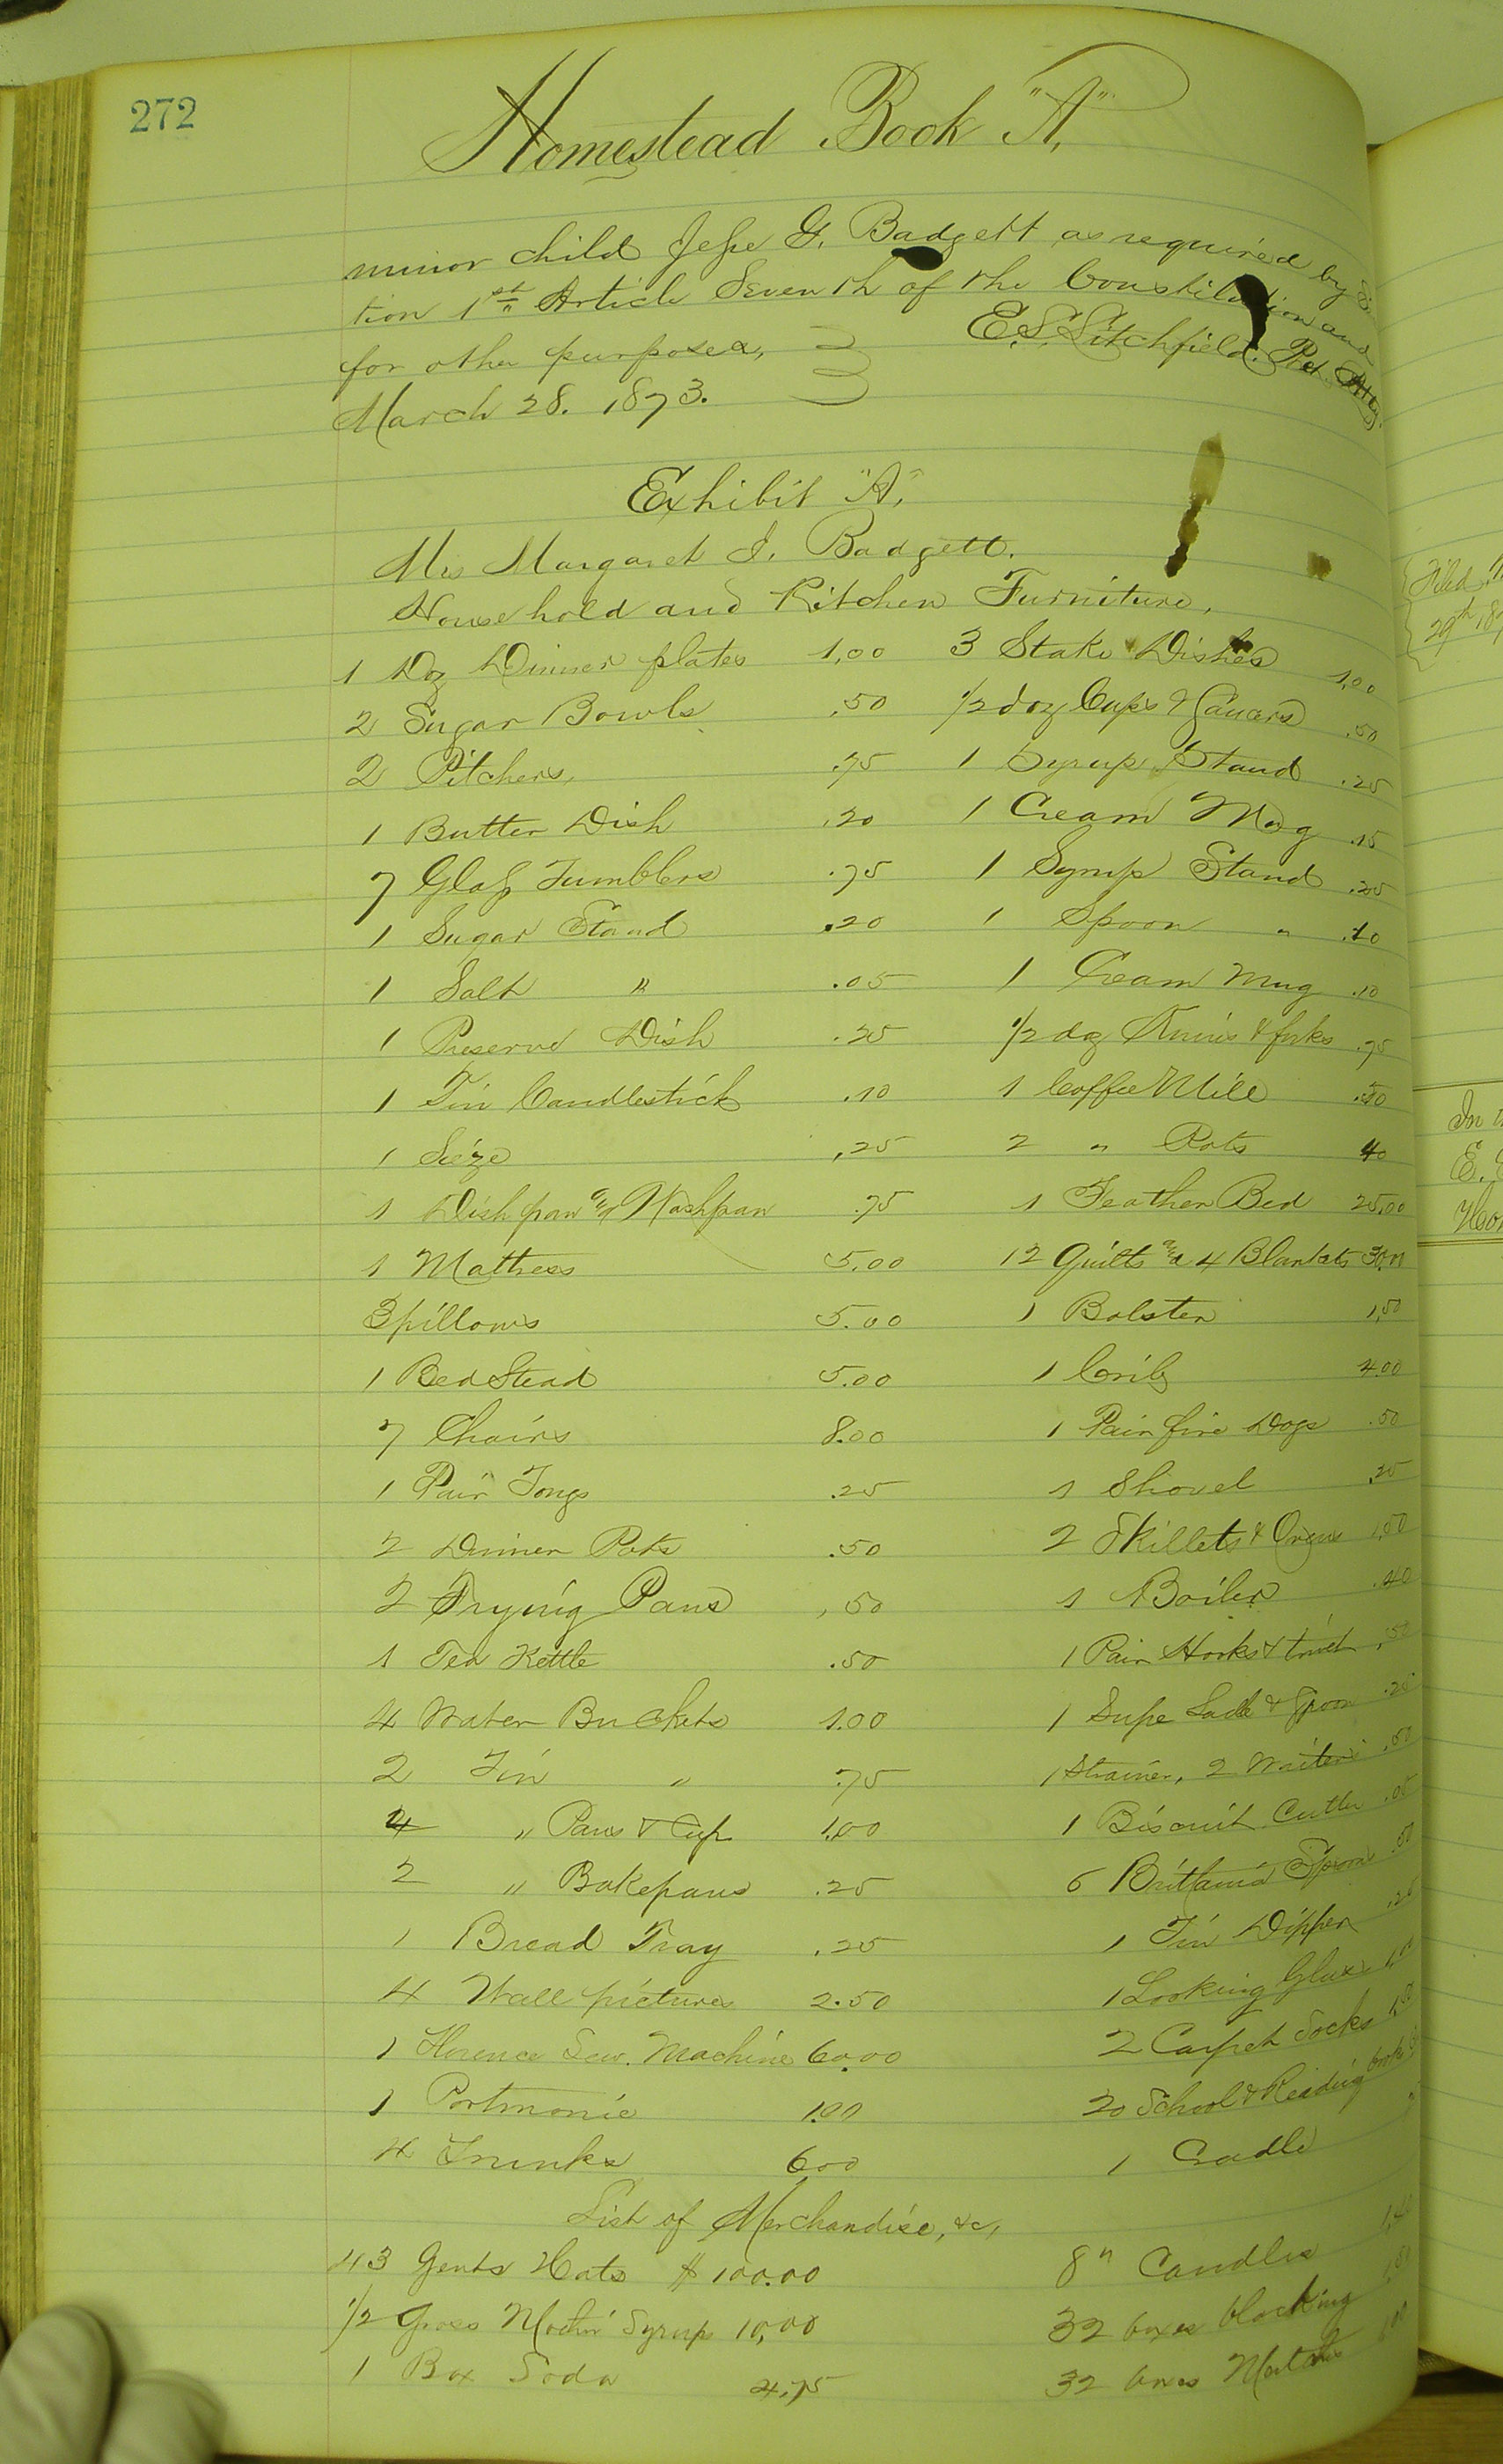 272
Homestead Book "A"
minor child Jesse G. Badgett as required by Sec-
tion 1st Article Seventh of the Constitution and
for other purposes,
E.S. Litchfield. Pet. Atty.
March 28. 1873.
Exhibit "A,"
Mrs Margaret J. Badgett.
Household and Kitchen Furniture,
1 Doz Dinner plates 1,00 3 Stake Dishes 1,00
2 Sugar Bowls .50 1/2 doz Cups & Saucers .50
2 Pitchers, .75 1 Syrup Stand .25
1 Butter Dish .20 1 Cream Mug .15
7 Glass Tumblers .75 1 Syrup Stand .25
1 Sugar Stand .20 1 Spoon " .10
1 Salt " .05 1 Cream Mug .10
1 Preserve Dish .25 1/2 doz Knives & forks .75
1 Tin Candlestick .10 1 Coffee Mill .50
1 Sieze ,25 2 " Pots 40
1 Dishpan and Washpan .75 1 Feather Bed 25,00
1 Mattress 5.00 12 Quilts and 4 Blankets 30.00
3 pillows 5.00 1 Bolster 1,50
1 Bed Stead 5.00 1 Crib 4.00
7 Chairs 8.00 1 Pair fire Dogs .50
1 Pair Tongs .25 1 Shovel .25
2 Dinner Pots .50 2 Skillets & Ovens 1,50
2 Frying Pans ,50 1 Boiler .40
1 Tea Kettle .50 1 Pair Hooks & trivet .50
4 Water Buckets 1.00 1 Supe Ladle & Spoon .25
2 Tin " .75 1 Strainer, 2 Waiters .50
4 " Pans & Cup 1,00 1 Biscuit Cutter .05
2 " Bakepans .25 6 Brittania Spoons .50
1 Bread Tray .25 1 Tin Dipper .25
4 Wall pictures 2.50 1 Looking Glass
1 Florence Sew. Machine 60.00 2 Carpet Socks
1 Portmonie 1.00 20 School & Reading books
4 Trunks 6.00 1 Cradle
List of Merchandise, &c,
43 Gents Hats $100.00 8 " Candles
1/2 Gross Syrup 10,00 32 boxes blacking
1 Box Soda 4.75 32 boxes
Filed
29th, 187
In
E.